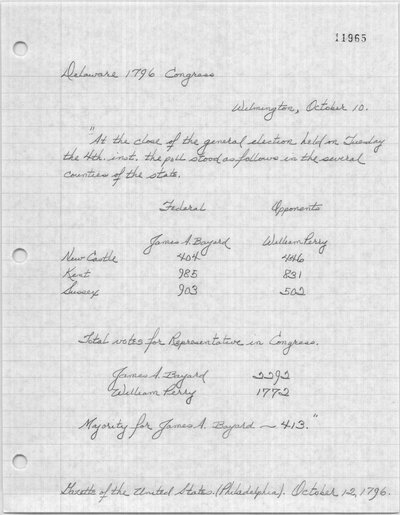 11965
Delaware 1796 Congress
Wilmington, October 10.
"At the close of the general election held on Tuesday
the 4th. inst. the poll stood as follows in the several
counties of the state.
Federal Opponents
James A. Bayard William Perry
New Castle 404 446
Kent 985
Sussex 903 502
Total votes for Representative in Congress.
James A. Bayard 2292
William Perry 1772
Majority for James A. Bayard — 413."
Gazette of the United States. (Philadelphia). October 12, 1796.